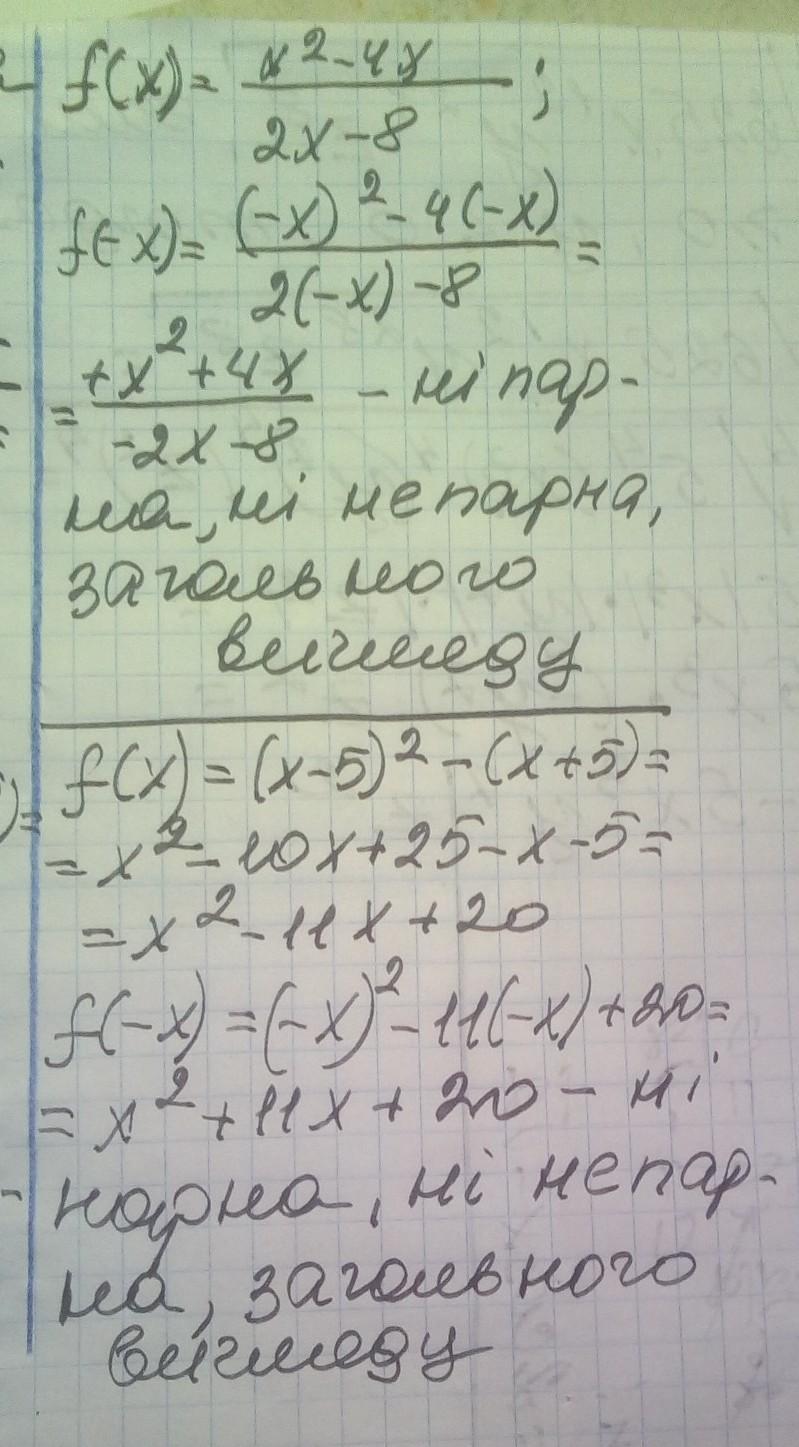 f(x) = (x² - 4x)/(2x - 8) ;
f(-x) = ((-x)² - 4(-x))/(2(-x) - 8) =
= (+x² + 4x)/(-2x - 8) - ні пар-
на, ні непарна,
загального
вигляду
f(x) = (x-5)² - (x+5) =
= x² - 10x + 25 - x - 5 =
= x² - 11x + 20
f(-x) = (-x)² - 11(-x) + 20 =
= x² + 11x + 20 - ні
парна, ні непар-
на, загального
вигляду